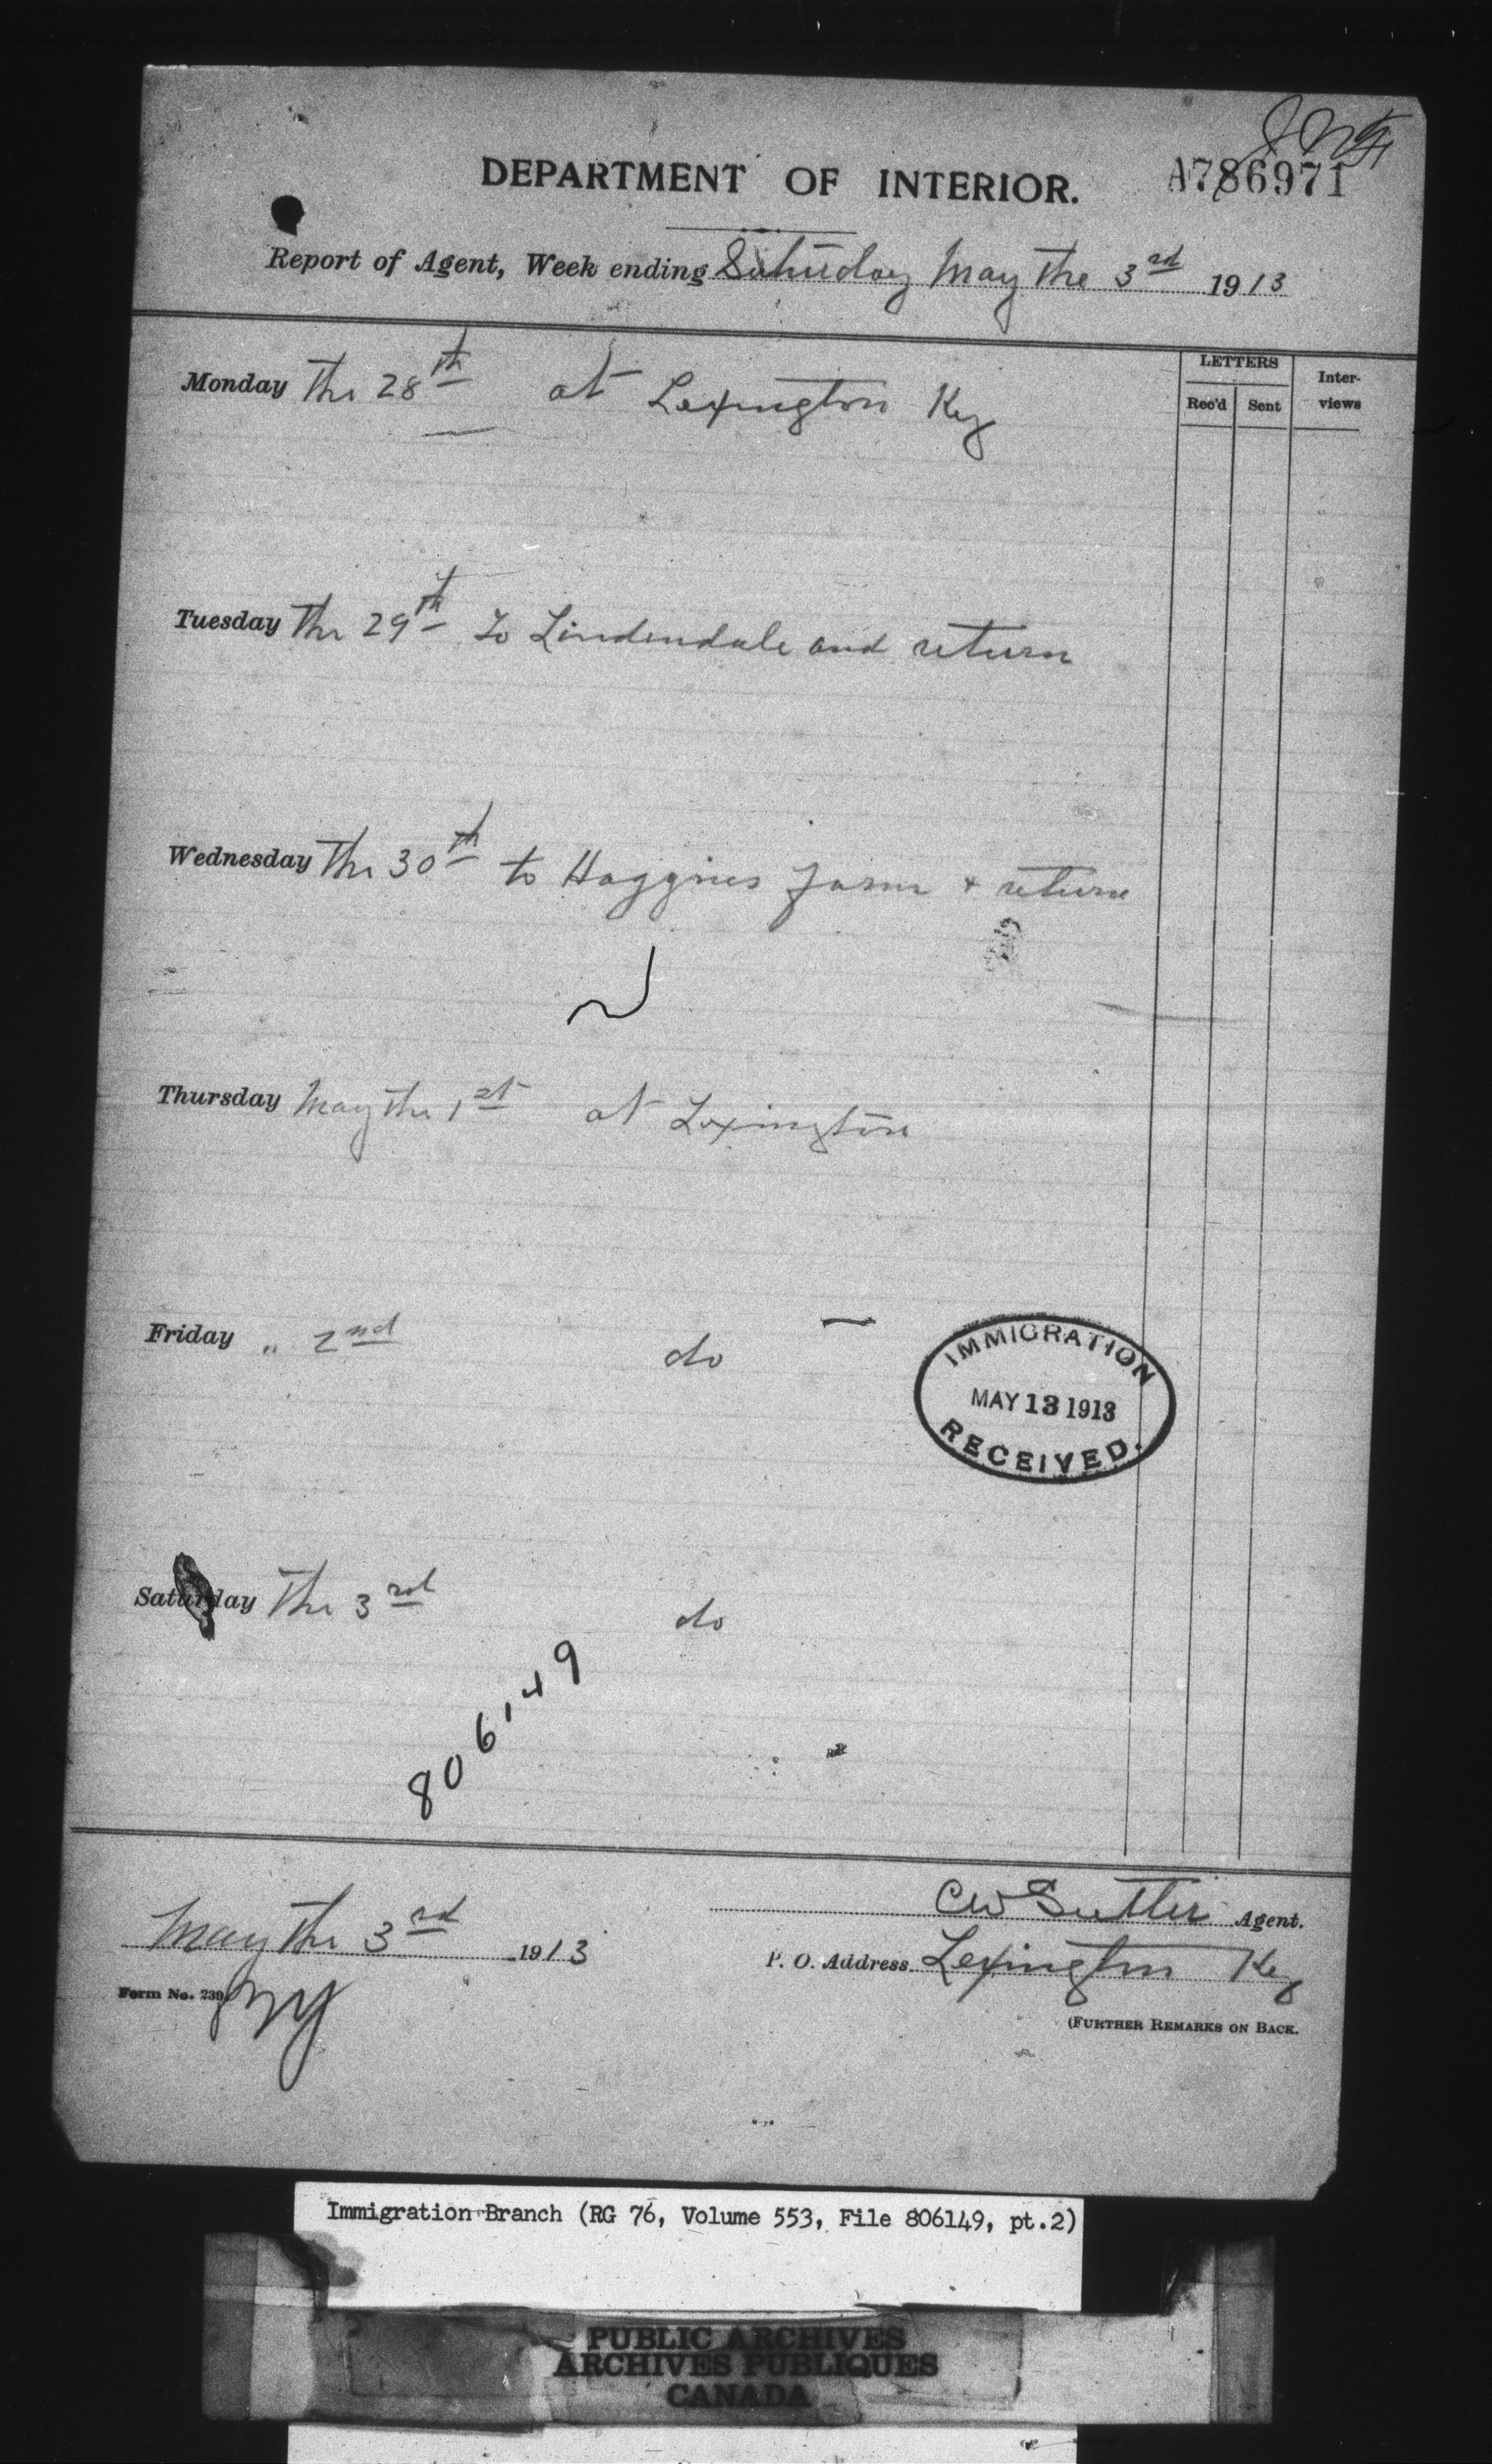 A786971
DEPARTMENT OF INTERIOR.
Report of Agent, Week ending Saturday May the 3rd 1913
LETTERS
Rec'd Sent
Inter-
views
Monday the 28th at Lexington Ky
Tuesday the 29th to Lindendale and return
Wednesday the 30th to Haggins farm + return
Thursday May the 1st at Lexington
Friday " 2nd do
IMMIGRATION
MAY 13 1913
RECEIVED.
Saturday the 3rd do
806149
CW Sutter Agent.
May the 3rd 1913
P. O. Address Lexington Ky
Form No. 239
(FURTHER REMARKS ON BACK.
Immigration Branch (RG 76, Volume 553, File 806149, pt.2)
PUBLIC ARCHIVES
ARCHIVES PUBLIQUES
CANADA